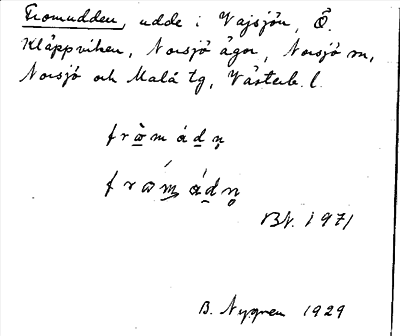 Fromudden, udde i Vajsjön, Ö.
Kläppviken, Norsjö ägor, Norsjö sn,
Norsjö och Malå tg, Västerb. l.
BN. 1971
B. Nygren 1929